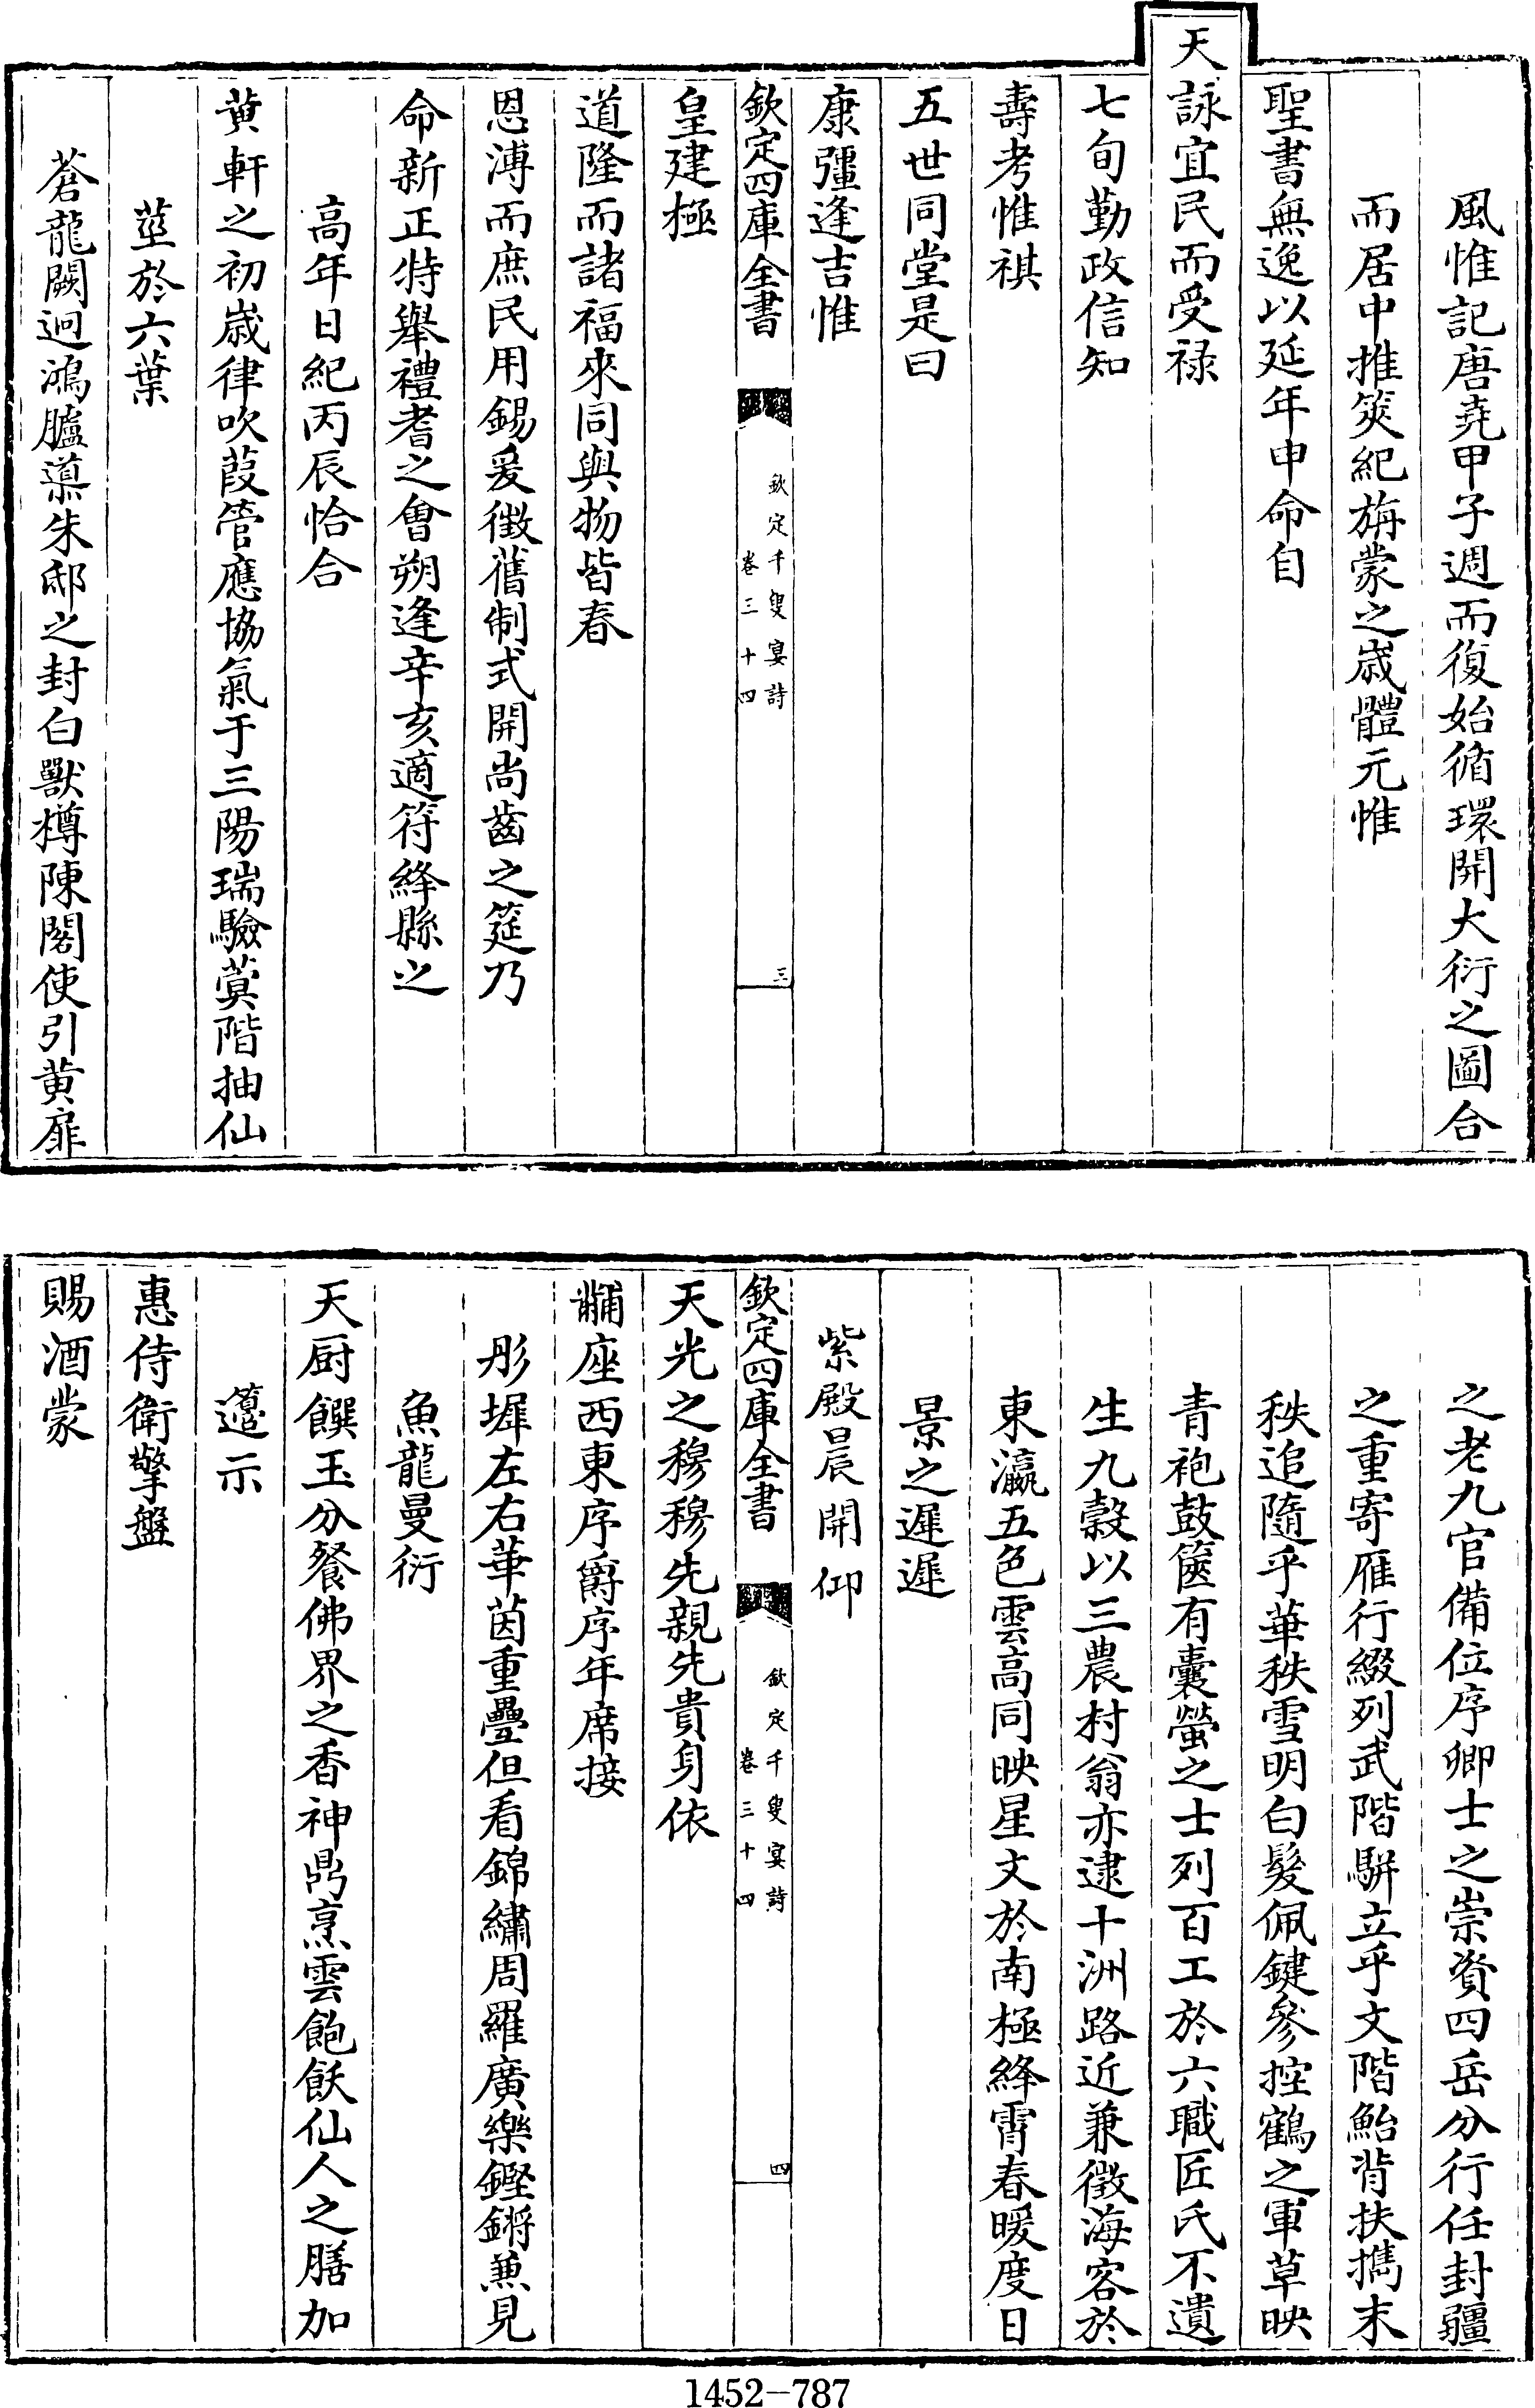 風惟記唐堯甲子週而復始循環開大衍之圖合
而居中推筴紀旃蒙之歲體元惟
聖書無逸以延年申命自
天詠宜民而受祿
七旬勤政信知
壽考惟祺
五世同堂是曰
康彊逢吉惟
欽定四庫全書
欽定千叟宴詩
卷三十四
三
皇建極
道隆而諸福來同與物皆春
恩溥而庶民用錫爰徵舊制式開尚齒之筵乃
命新正特舉禮耆之會朔逢辛亥適符絳縣之
高年日紀丙辰恰合
黃軒之初歲律吹葭管應協氣于三陽瑞驗蓂階抽仙
莖於六葉
蒼龍闕迥鴻臚導朱邸之封白獸樽陳閣使引黃扉
之老九官備位序卿士之崇資四岳分行任封疆
之重寄雁行綴列武階駢立乎文階鮐背扶攜末
秩追隨乎華秩雪明白髮佩鍵參控鶴之軍草映
青袍鼓篋有囊螢之士列百工於六職匠氏不遺
生九穀以三農村翁亦逮十洲路近兼徵海客於
東瀛五色雲高同映星文於南極絳霄春暖度日
景之遲遲
紫殿晨開仰
欽定四庫全書
欽定千叟宴詩
卷三十四
四
天光之穆穆先親先貴身依
黼座西東序爵序年席接
彤墀左右華茵重疊但看錦繡周羅廣樂鏗鏘兼見
魚龍曼衍
天厨饌玉分餐佛界之香神鼎烹雲飽飫仙人之膳加
籩示
惠侍衛擎盤
賜酒蒙
1452-787